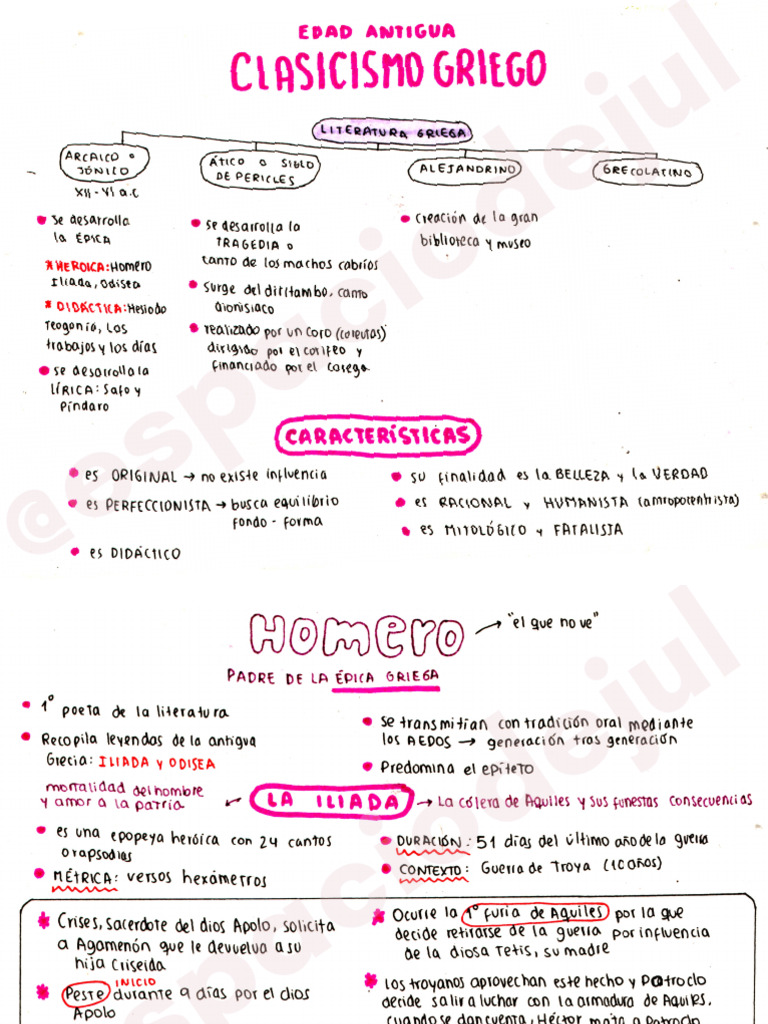 EDAD ANTIGUA
CLASICISMO GRIEGO
LITERATURA GRIEGA
ARCAICO O
JÓNICO
XII - VI a.C
se desarrolla
la ÉPICA
* HEROICA: Homero
Iliada, Odisea
* DIDÁCTICA: Hesiodo
Teogonía, Los
trabajos y los días
se desarrolla la
LÍRICA: Safo y
Píndaro
ÁTICO O SIGLO
DE PERICLES
se desarrolla la
TRAGEDIA o
canto de los machos cabríos
surge del ditirambo, canto
dionisiaco
realizado por un coro (coreutas)
dirigido por el corifeo y
financiado por el corega
ALEJANDRINO
creación de la gran
biblioteca y museo
GRECOLATINO
CARACTERÍSTICAS
es ORIGINAL → no existe influencia
es PERFECCIONISTA → busca equilibrio
fondo - forma
es DIDÁCTICO
su finalidad es la BELLEZA y la VERDAD
es RACIONAL y HUMANISTA (antropocentrista)
es MITOLÓGICO y FATALISTA
Homero → "el que no ve"
PADRE DE LA ÉPICA GRIEGA
1° poeta de la literatura
Recopila leyendas de la antigua
Grecia: ILIADA y ODISEA
se transmitian con tradición oral mediante
los AEDOS → generación tras generación
Predomina el epíteto
mortalidad del hombre
y amor a la patria
LA ILIADA → La cólera de Aquiles y sus funestas consecuencias
es una epopeya heroica con 24 cantos
o rapsodias
MÉTRICA: versos hexámetros
DURACIÓN: 51 días del último año de la guerra
CONTEXTO: Guerra de Troya (10 años)
* Crises, sacerdote del dios Apolo, solicita
a Agamenón que le devuelva a su
hija Criseida
INICIO
* Peste durante 9 días por el dios
Apolo
* Ocurre la 1° furia de Aquiles por la que
decide retirarse de la guerra por influencia
de la diosa Tetis, su madre
* Los troyanos aprovechan este hecho y Patroclo
decide salir a luchar con la armadura de Aquiles,
cuando se dan cuenta, Héctor mata a Patroclo
@espaciodejul
@espaciodejul